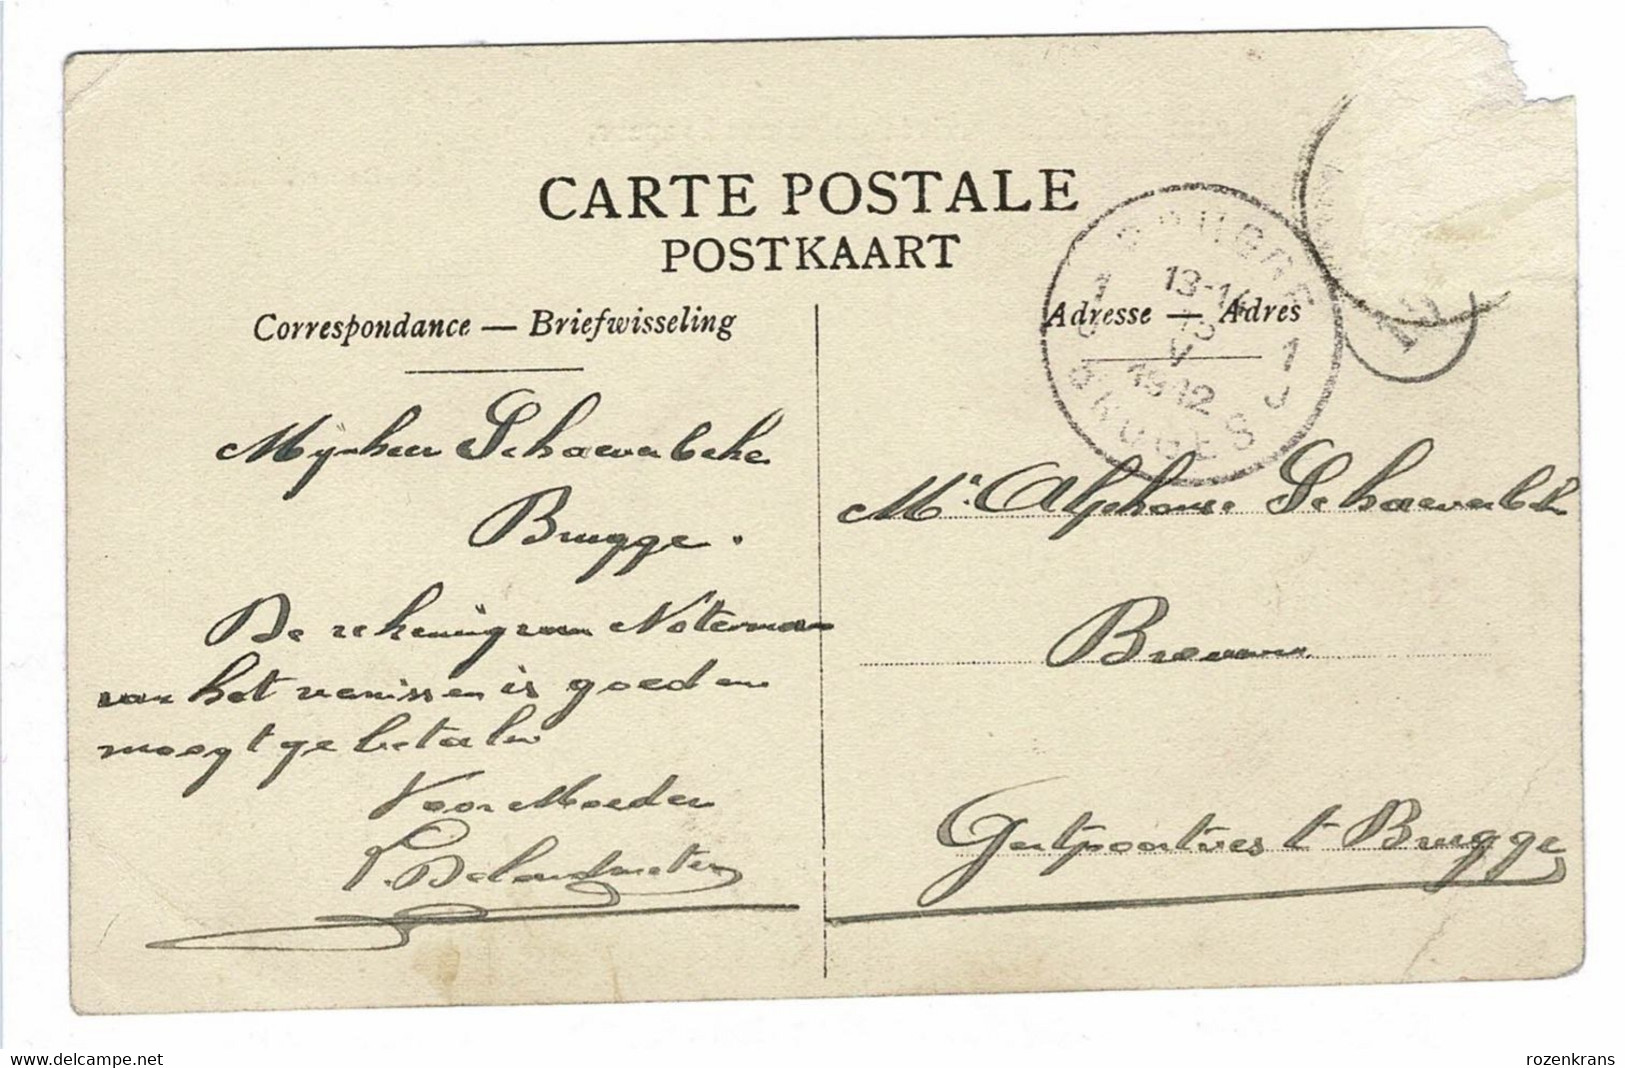 CARTE POSTALE
POSTKAART
Correspondance — Briefwisseling
Adresse — Adres
BRUGGE
1 1
13-14
15
V
1912
J J
BRUGES
19
Mijnheer Schaeverbeke
Brugge.
De rekening van Noterman
van het vernissen is goed en
moogt ge betalen
Voor Moeder
Mr. Alphonse Schaeverbeke
Brouwer
Gentpoortvest Brugge
www.delcampe.net
rozenkrans